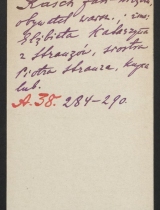 Kasch Jan
obywatel warsz., żona:
Elżbieta Katarzyna
z Strauzów, siostra
Piotra Strauza, kupca
lub.
A. 38. 284-290.